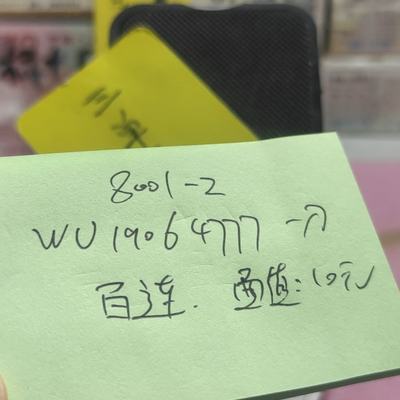 8001-2
WU19064777 一刀
百连. 面值:10元